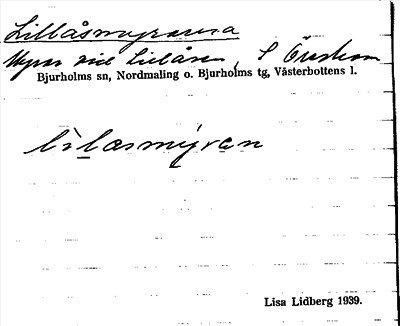 Lillåsmyrarna
Myrar vid Lillåsen, S Öreström
Bjurholms sn, Nordmaling o. Bjurholms tg, Västerbottens l.
lilasmyran
Lisa Lidberg 1939.